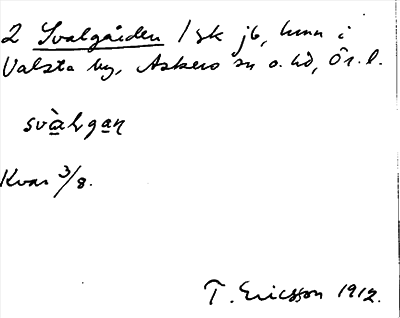 2 Svalgården / sk jb, hmn i
Valsta by, Askers sn o. hd, Ör. l.
Kvar 3/8.
T. Ericsson 1912.